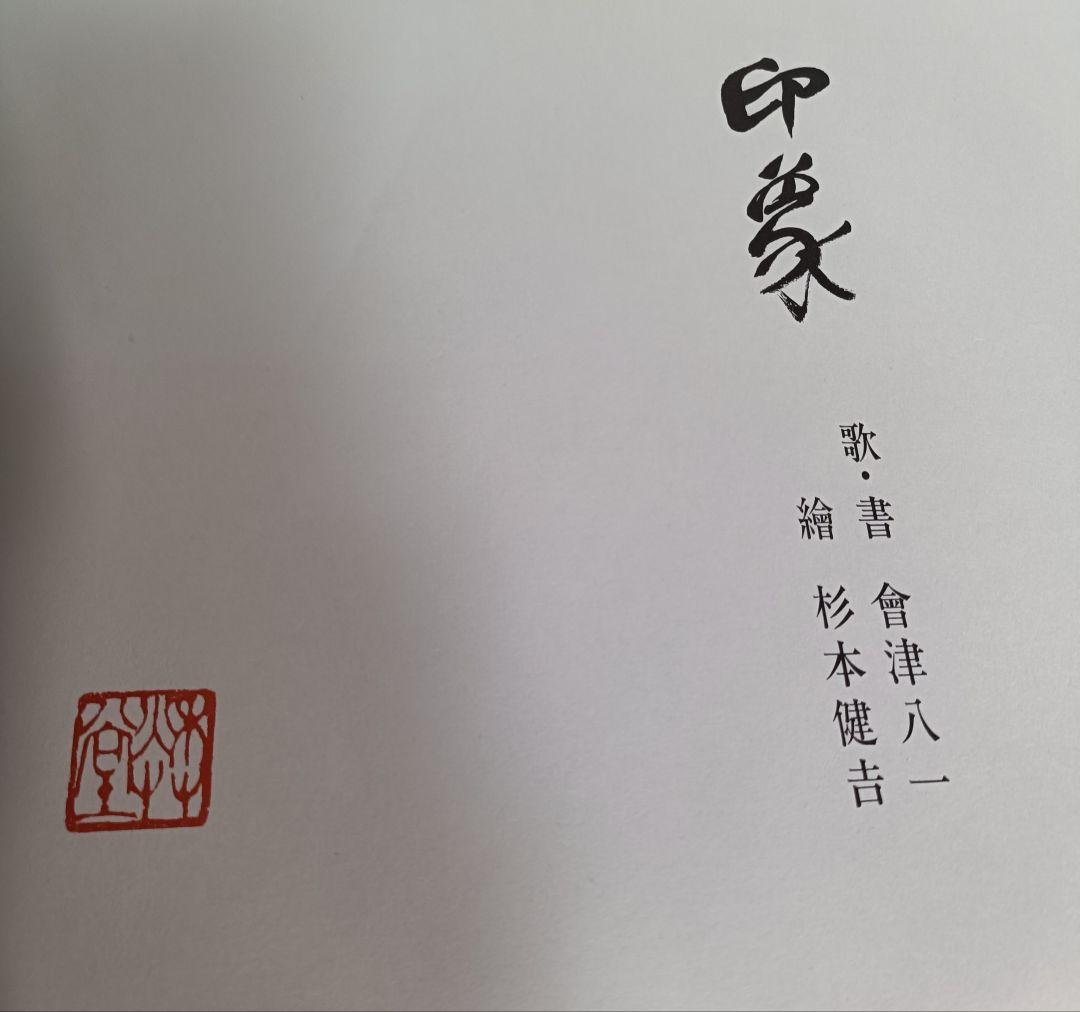 印象
歌・書 會津八一
繪 杉本健吉